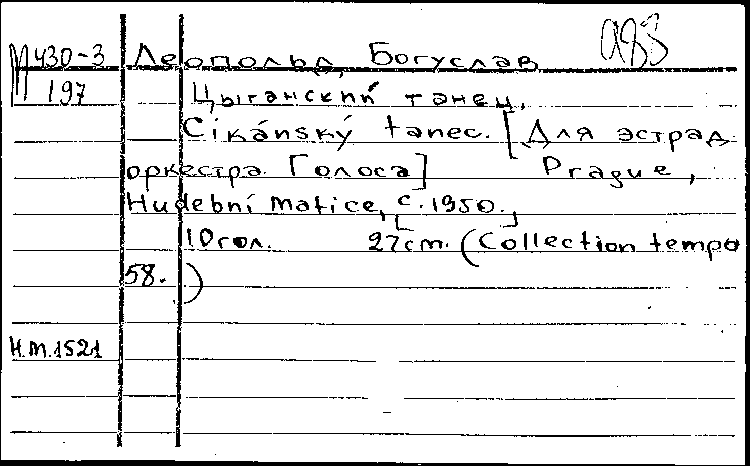 М 430-3 Леопольд, Богуслав
197 Цыганский танец.
Cikánský tanec. [Для эстрад.
оркестра. Голоса] Prague,
Hudební matice, [c. 1950.]
10 гол. 27 cm. (Collection tempo
58.)
H.M.1521